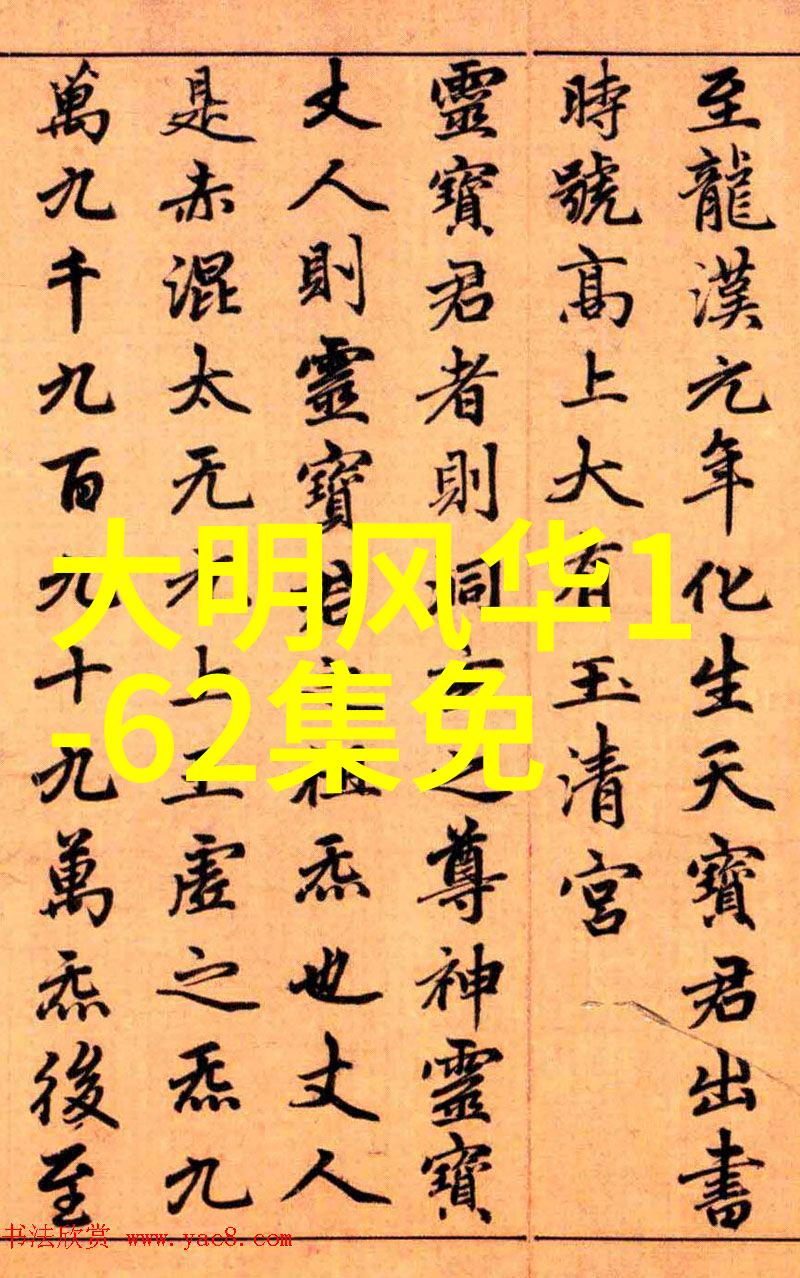 至龍漢元年化生天寶君出書
時號高上大有玉清宮
靈寶君者則洞玄之尊神靈寶
丈人則靈寶君祖炁也丈人
是赤混太无元上玉虛之炁九
萬九千九百九十九萬炁後至
大明风华1
-62集免
书法欣赏 www.yac8.com